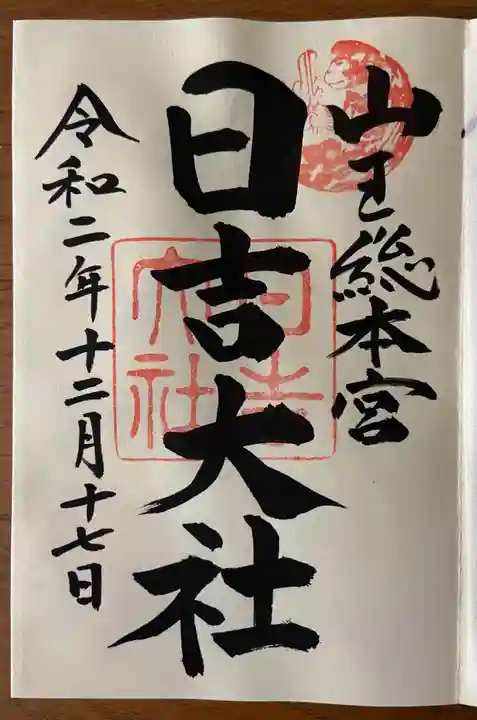 山王総本宮
日吉大社
日吉大社
令和二年十二月十七日